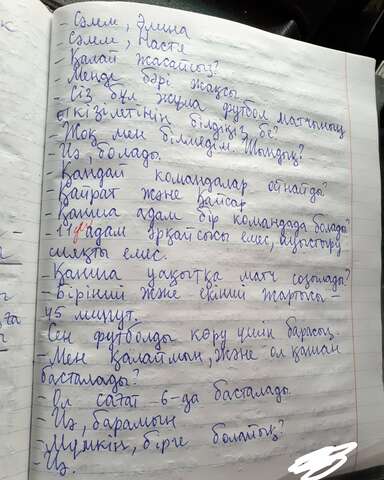 - Сәлем, Әлина
- Сәлем, Настя
- Қалай жасайсың?
- Менде бәрі жақсы.
- Сіз бұл жұма футбол матчының
өткізілетінін білдіңіз бе?
- Жоқ мен білмедім. Шындық?
- Иә, болады.
- Қандай командалар ойнайды?
- Қайрат және Қайсар
- Қанша адам бір командада болады?
- 11 адам әрқайсысы емес, ауыстыру
сияқты емес.
- Қанша уақытқа матч созылады?
- Бірінший және екінший жартысы -
45 минут.
- Сен футболды көру үшін барасың.
- Мен қалаймын, және ол қашан
басталады?
- Ол сағат 6-да басталады.
- Иә, барамын
- Мүмкін, бірге болайық?
- Иә.